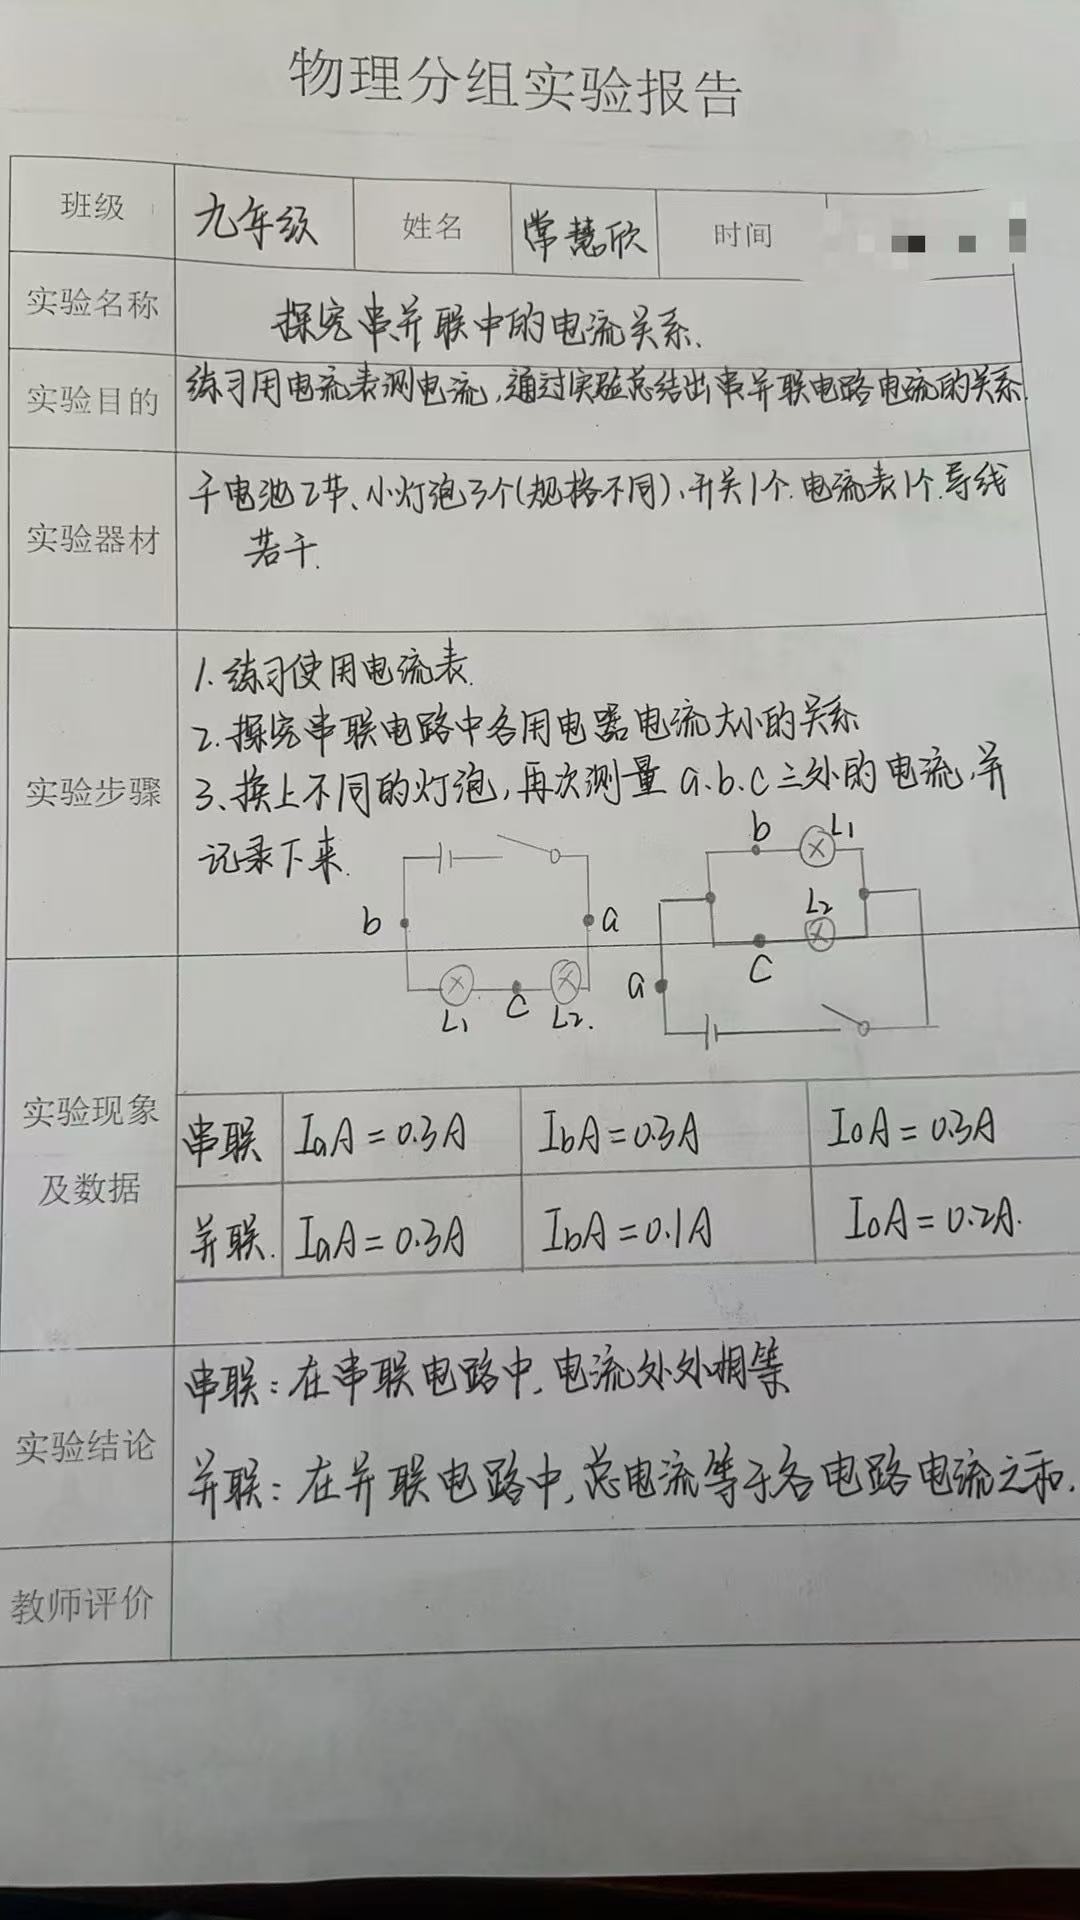 物理分组实验报告
班级 九年级 姓名 常慧欣 时间
实验名称 探究串并联中的电流关系.
实验目的 练习用电流表测电流,通过实验总结出串并联电路电流的关系.
实验器材 干电池2节、小灯泡3个(规格不同)、开关1个.电流表1个.导线
若干.
实验步骤
1.练习使用电流表.
2.探究串联电路中各用电器电流大小的关系
3、换上不同的灯泡,再次测量a.b.c三处的电流,并
记录下来.
b a
L1 C L2.
b L1
L2
C
a
实验现象
及数据
串联 IaA=0.3A IbA=0.3A IoA=0.3A
并联. IaA=0.3A IbA=0.1A IoA=0.2A.
实验结论
串联:在串联电路中,电流处处相等
并联:在并联电路中,总电流等于各电路电流之和.
教师评价